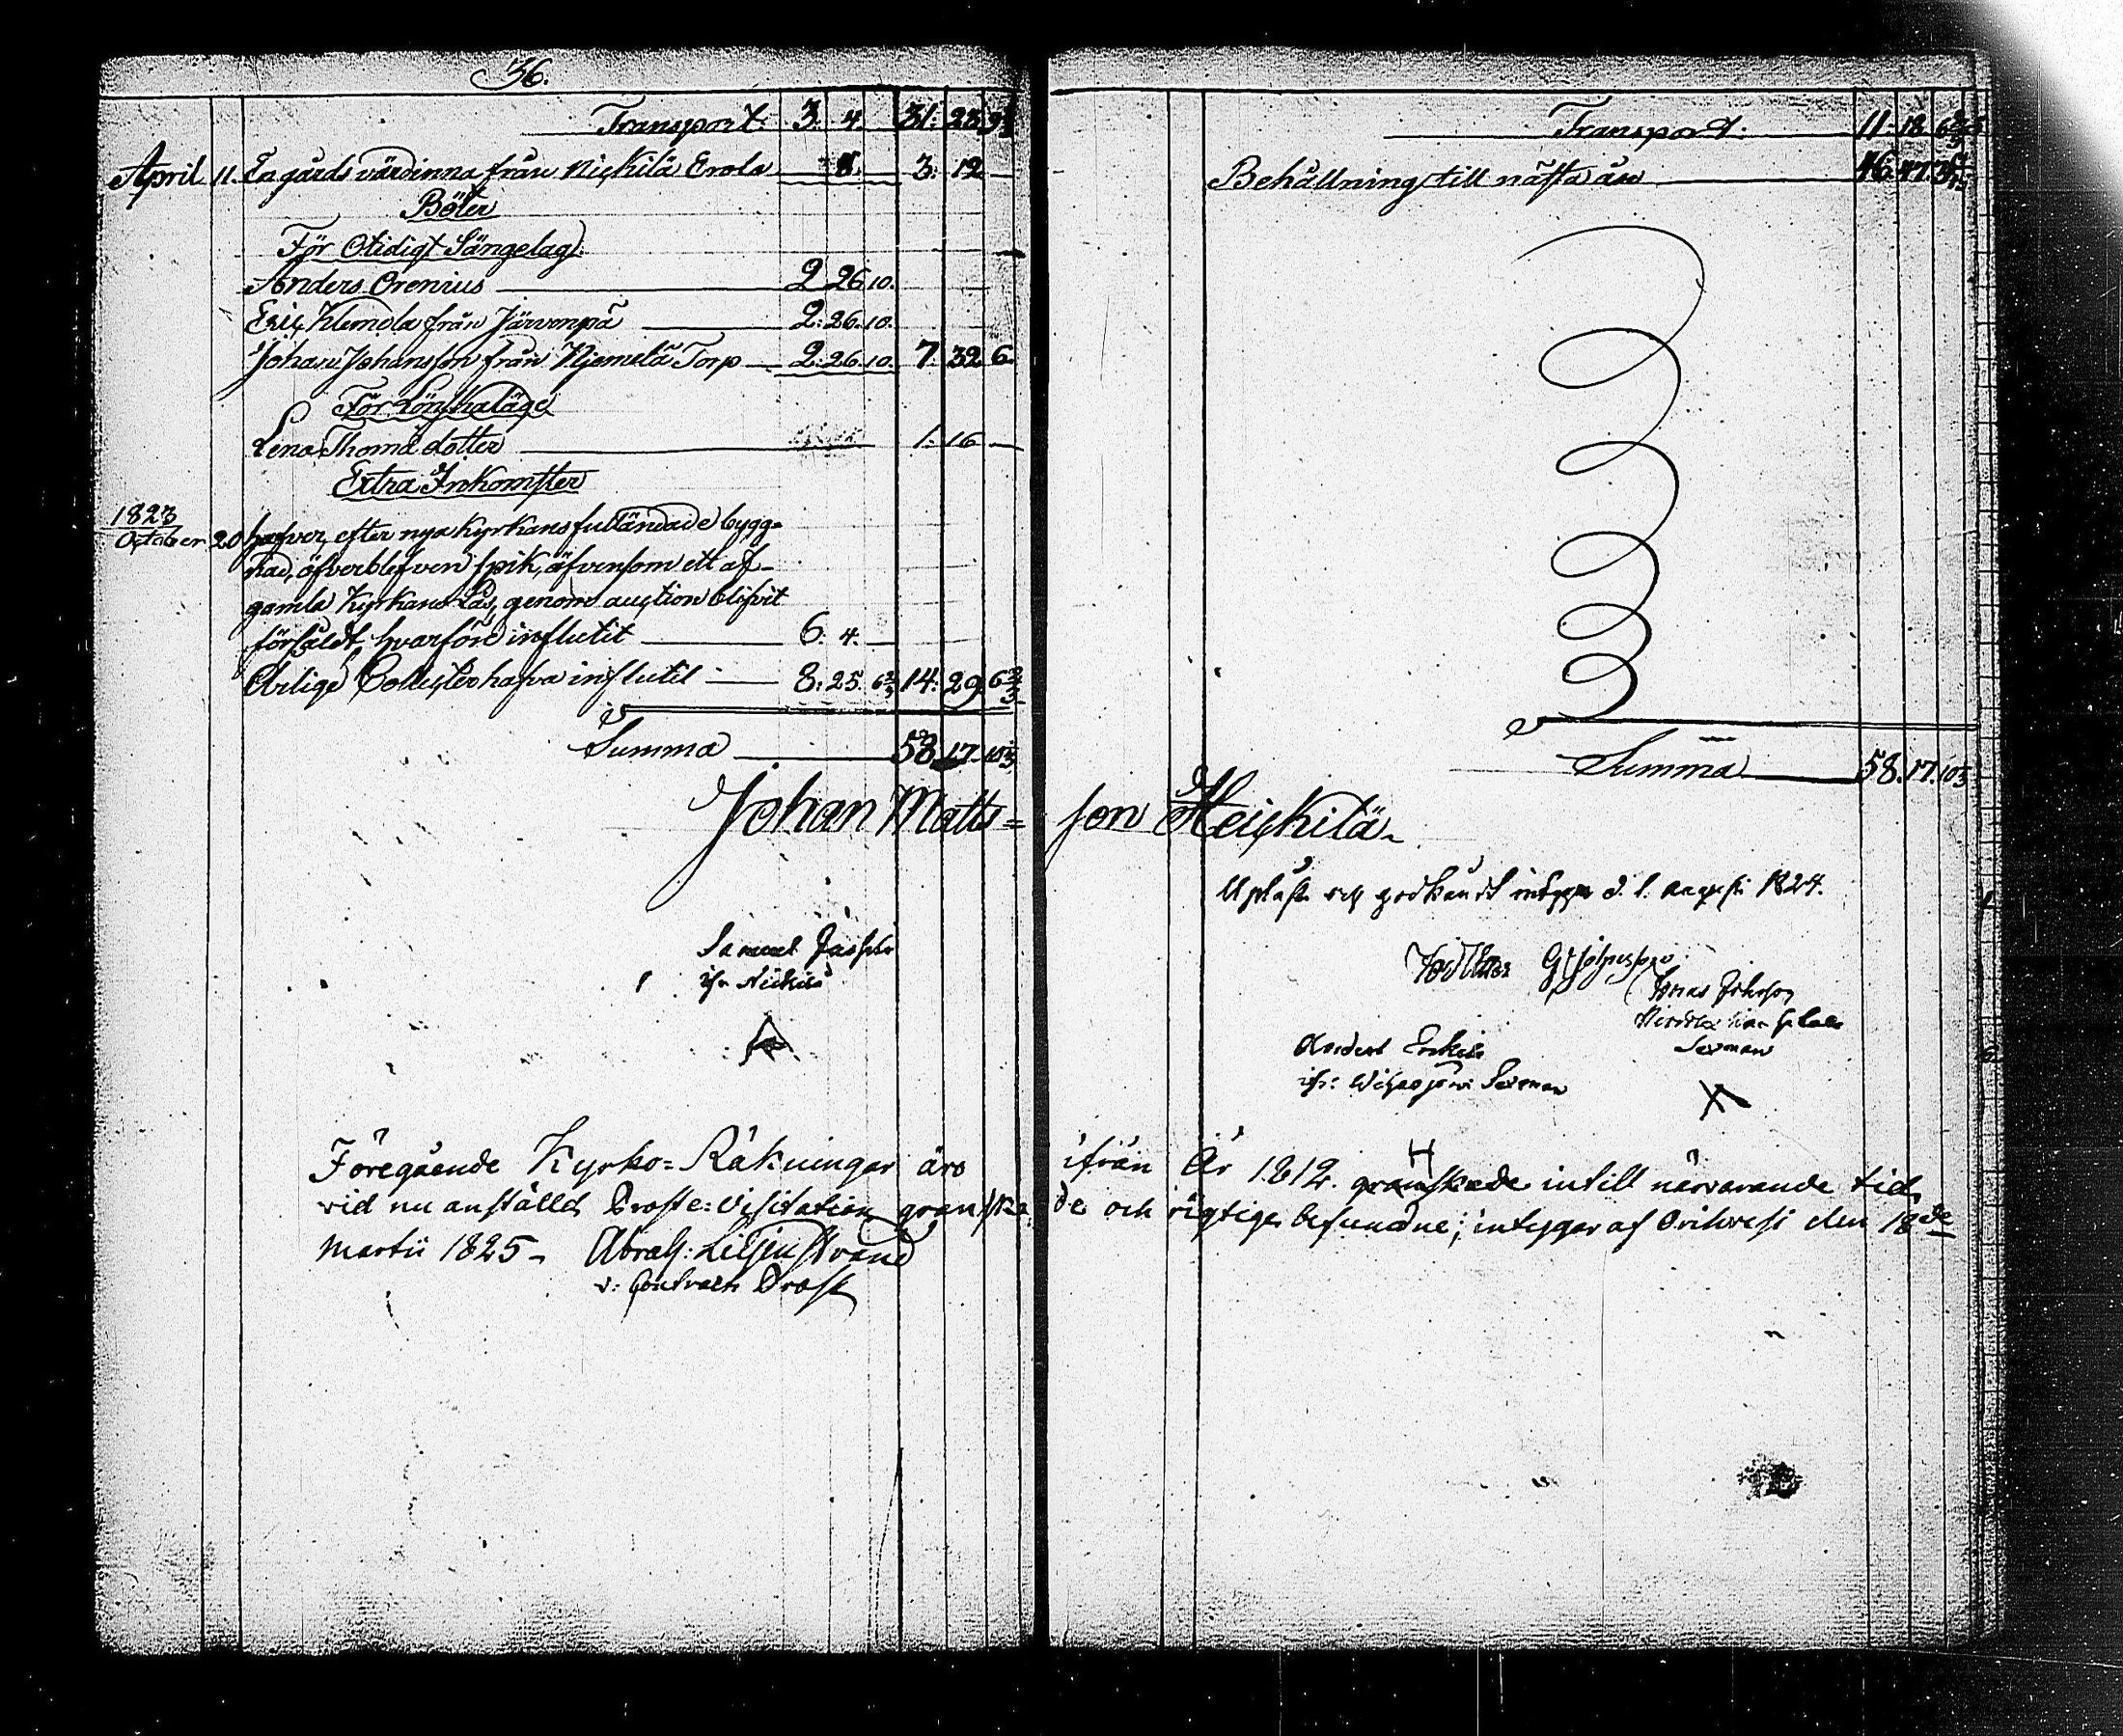 36.
Transport. 3. 4. 31: 23. 9⅓
April 11. En gårds värdinna från Nickilä Erola 8. 3: 12
Böter
För Otidigt Sängelag.
Anders Orenius 2 26 10.
Eric Klemola från Järvenpä 2: 26. 10.
Johan Johansson från Njemelä Torp 2: 26. 10. 7. 32 6.
För Lönskaläge
Lena Thomä dotter 1: 16
Extra Inkomster
1823
October 20 hafver, efter nya Kyrkans fulländade bygg=
nad, öfverblefven spik, äfvensom ett af
gamla Kyrkans Lås, genom auction blifvit
försåldt, hvarföre influtit 6: 4.
Årlige Collecter hafva influtit 8: 25. 6⅔ 14: 29 6⅔
Summa 58. 17. 10⅓
Johan Matts=
Samuel
ifr Nickilä
Transport. 11. 18
Behållning till nästa år 46. 47.
Summa 58. 17. 10⅓
son Heickilä
Upläst och godkändt intygar d. 1. augusti 1824.
Jonas
Sexman
Anders Erkilä
ifr: Sexman
Föregående Kyrko=Räkningar äro ifrån År 1812. granskade intill närvarande tid,
vid nu anställd Proste=Visitation granskade och rigtige befundne; intygar af Orihvesi den 18de
Martii 1825 Abrah: Liljenstrand
v: Contracts Prost